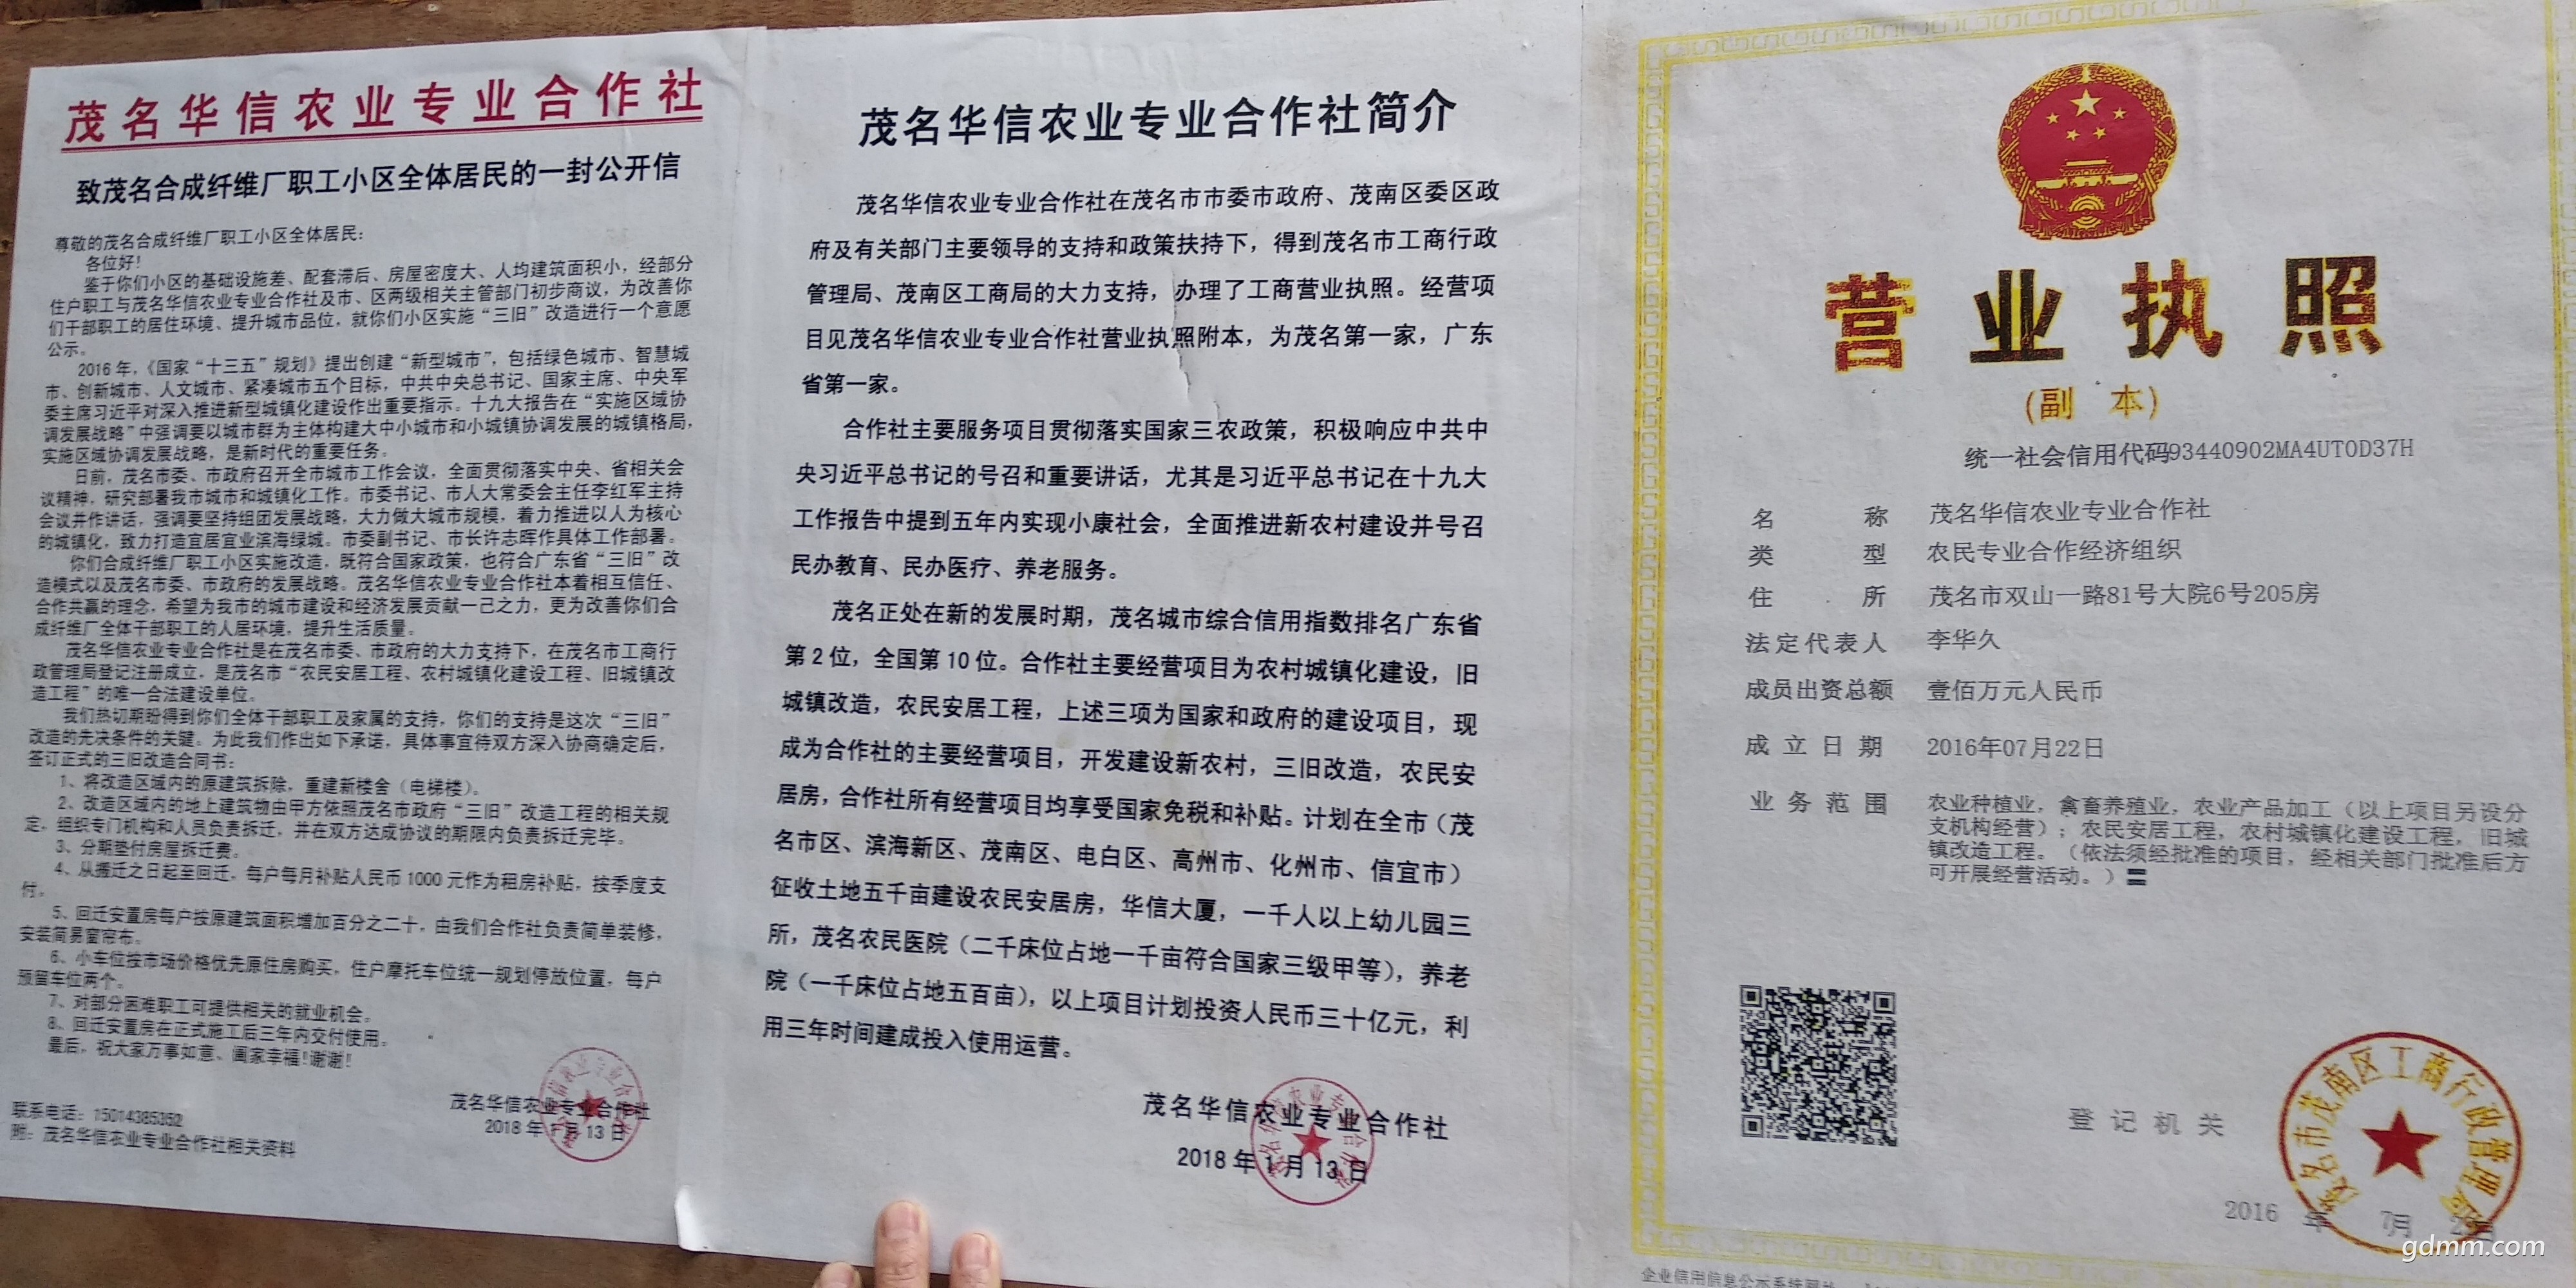 茂名华信农业专业合作社
致茂名合成纤维厂职工小区全体居民的一封公开信
尊敬的茂名合成纤维厂职工小区全体居民：
各位好！
鉴于你们小区的基础设施差、配套滞后、房屋密度大、人均建筑面积小，经部分
住户职工与茂名华信农业专业合作社及市、区两级相关主管部门初步商议，为改善你
们干部职工的居住环境、提升城市品位，就你们小区实施“三旧”改造进行一个意愿
公示。
2016年，《国家“十三五”规划》提出创建“新型城市”，包括绿色城市、智慧城
市、创新城市、人文城市、紧凑城市五个目标，中共中央总书记、国家主席、中央军
委主席习近平对深入推进新型城镇化建设作出重要指示。十九大报告在“实施区域协
调发展战略”中强调要以城市群为主体构建大中小城市和小城镇协调发展的城镇格局，
实施区域协调发展战略，是新时代的重要任务。
日前，茂名市委、市政府召开全市城市工作会议，全面贯彻落实中央、省相关会
议精神，研究部署我市城市和城镇化工作。市委书记、市人大常委会主任李红军主持
会议并作讲话，强调要坚持组团发展战略，大力做大城市规模，着力推进以人为核心
的城镇化，致力打造宜居宜业滨海绿城。市委副书记、市长许志晖作具体工作部署。
你们合成纤维厂职工小区实施改造，既符合国家政策，也符合广东省“三旧”改
造模式以及茂名市委、市政府的发展战略。茂名华信农业专业合作社本着相互信任、
合作共赢的理念，希望为我市的城市建设和经济发展贡献一己之力，更为改善你们合
成纤维厂全体干部职工的人居环境，提升生活质量。
茂名华信农业专业合作社是在茂名市委、市政府的大力支持下，在茂名市工商行
政管理局登记注册成立，是茂名市“农民安居工程、农村城镇化建设工程、旧城镇改
造工程”的唯一合法建设单位。
我们热切期盼得到你们全体干部职工及家属的支持，你们的支持是这次“三旧”
改造的先决条件的关键。为此我们作出如下承诺，具体事宜待双方深入协商确定后，
签订正式的三旧改造合同书：
1、将改造区域内的原建筑拆除，重建新楼舍（电梯楼）。
2、改造区域内的地上建筑物由甲方依照茂名市政府“三旧”改造工程的相关规
定，组织专门机构和人员负责拆迁，并在双方达成协议的期限内负责拆迁完毕。
3、分期垫付房屋拆迁费。
4、从搬迁之日起至回迁，每户每月补贴人民币1000元作为租房补贴，按季度支
付。
5、回迁安置房每户按原建筑面积增加百分之二十，由我们合作社负责简单装修，
安装简易窗帘布。
6、小车位按市场价格优先原住房购买，住户摩托车位统一规划停放位置，每户
预留车位两个。
7、对部分困难职工可提供相关的就业机会。
8、回迁安置房在正式施工后三年内交付使用。
最后，祝大家万事如意、阖家幸福！谢谢！
茂名华信农业专业合作社
2018年1月13日
联系电话：15014385352
附：茂名华信农业专业合作社相关资料
茂名华信农业专业合作社简介
茂名华信农业专业合作社在茂名市市委市政府、茂南区委区政
府及有关部门主要领导的支持和政策扶持下，得到茂名市工商行政
管理局、茂南区工商局的大力支持，办理了工商营业执照。经营项
目见茂名华信农业专业合作社营业执照附本，为茂名第一家，广东
省第一家。
合作社主要服务项目贯彻落实国家三农政策，积极响应中共中
央习近平总书记的号召和重要讲话，尤其是习近平总书记在十九大
工作报告中提到五年内实现小康社会，全面推进新农村建设并号召
民办教育、民办医疗、养老服务。
茂名正处在新的发展时期，茂名城市综合信用指数排名广东省
第2位，全国第10位。合作社主要经营项目为农村城镇化建设，旧
城镇改造，农民安居工程，上述三项为国家和政府的建设项目，现
成为合作社的主要经营项目，开发建设新农村，三旧改造，农民安
居房，合作社所有经营项目均享受国家免税和补贴。计划在全市（茂
名市区、滨海新区、茂南区、电白区、高州市、化州市、信宜市）
征收土地五千亩建设农民安居房，华信大厦，一千人以上幼儿园三
所，茂名农民医院（二千床位占地一千亩符合国家三级甲等），养老
院（一千床位占地五百亩），以上项目计划投资人民币三十亿元，利
用三年时间建成投入使用运营。
茂名华信农业专业合作社
2018年1月13日
营业执照
（副本）
统一社会信用代码93440902MA4UT0D37H
名称 茂名华信农业专业合作社
类型 农民专业合作经济组织
住所 茂名市双山一路81号大院6号205房
法定代表人 李华久
成员出资总额 壹佰万元人民币
成立日期 2016年07月22日
业务范围 农业种植业，禽畜养殖业，农业产品加工（以上项目另设分
支机构经营）；农民安居工程，农村城镇化建设工程，旧城
镇改造工程。（依法须经批准的项目，经相关部门批准后方
可开展经营活动。）
登记机关
茂名市茂南区工商行政管理局
2016年 7月
gdmm.com
企业信用信息公示系统网址